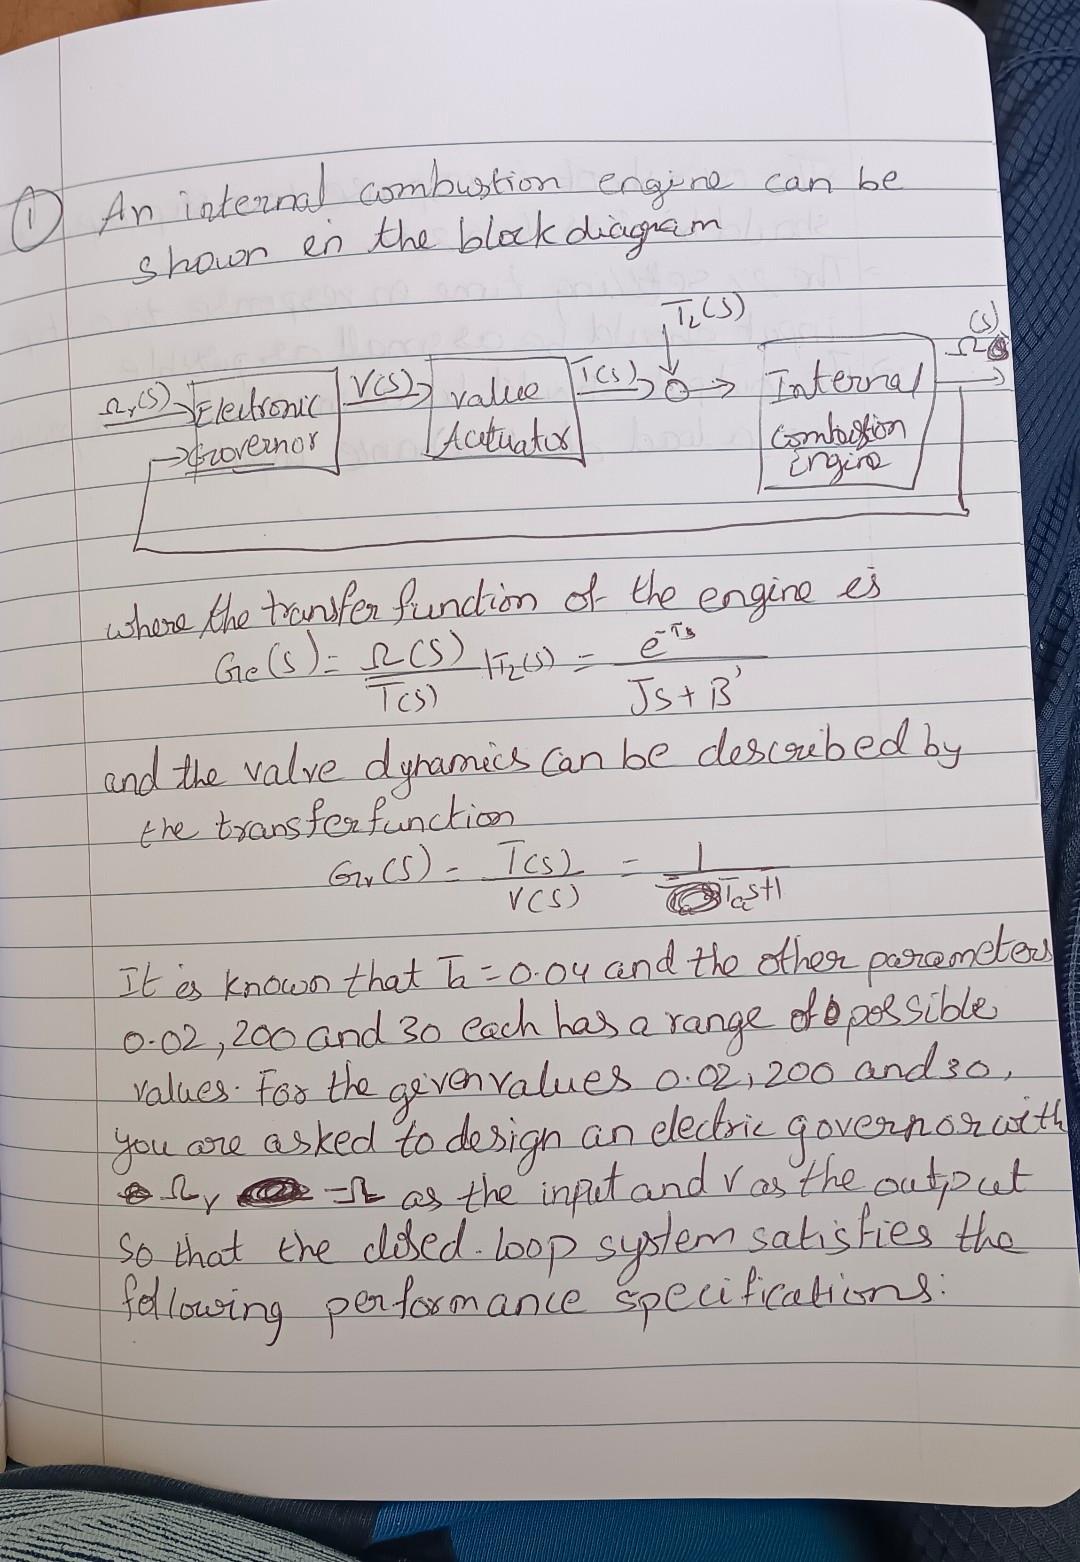 ① An internal combustion engine can be
shown in the block diagram
T₂(s)
Ωr(s) Electronic Governor V(s) value Acutuator T(s) Internal Combustion Engine Ω(s)
where the transfer function of the engine is
Ge(s) = Ω(s)/T(s) |T₂(s) = e^-Ts / Js + B'
and the valve dynamics can be described by
the transfer function
Gv(s) = T(s)/V(s) = 1/Tas+1
It is known that Ta = 0.04 and the other parameters
0.02, 200 and 30 each has a range of possible
values. For the given values 0.02, 200 and 30,
you are asked to design an electric governor with
Ωr - Ω as the input and v as the output
so that the closed-loop system satisfies the
following performance specifications: